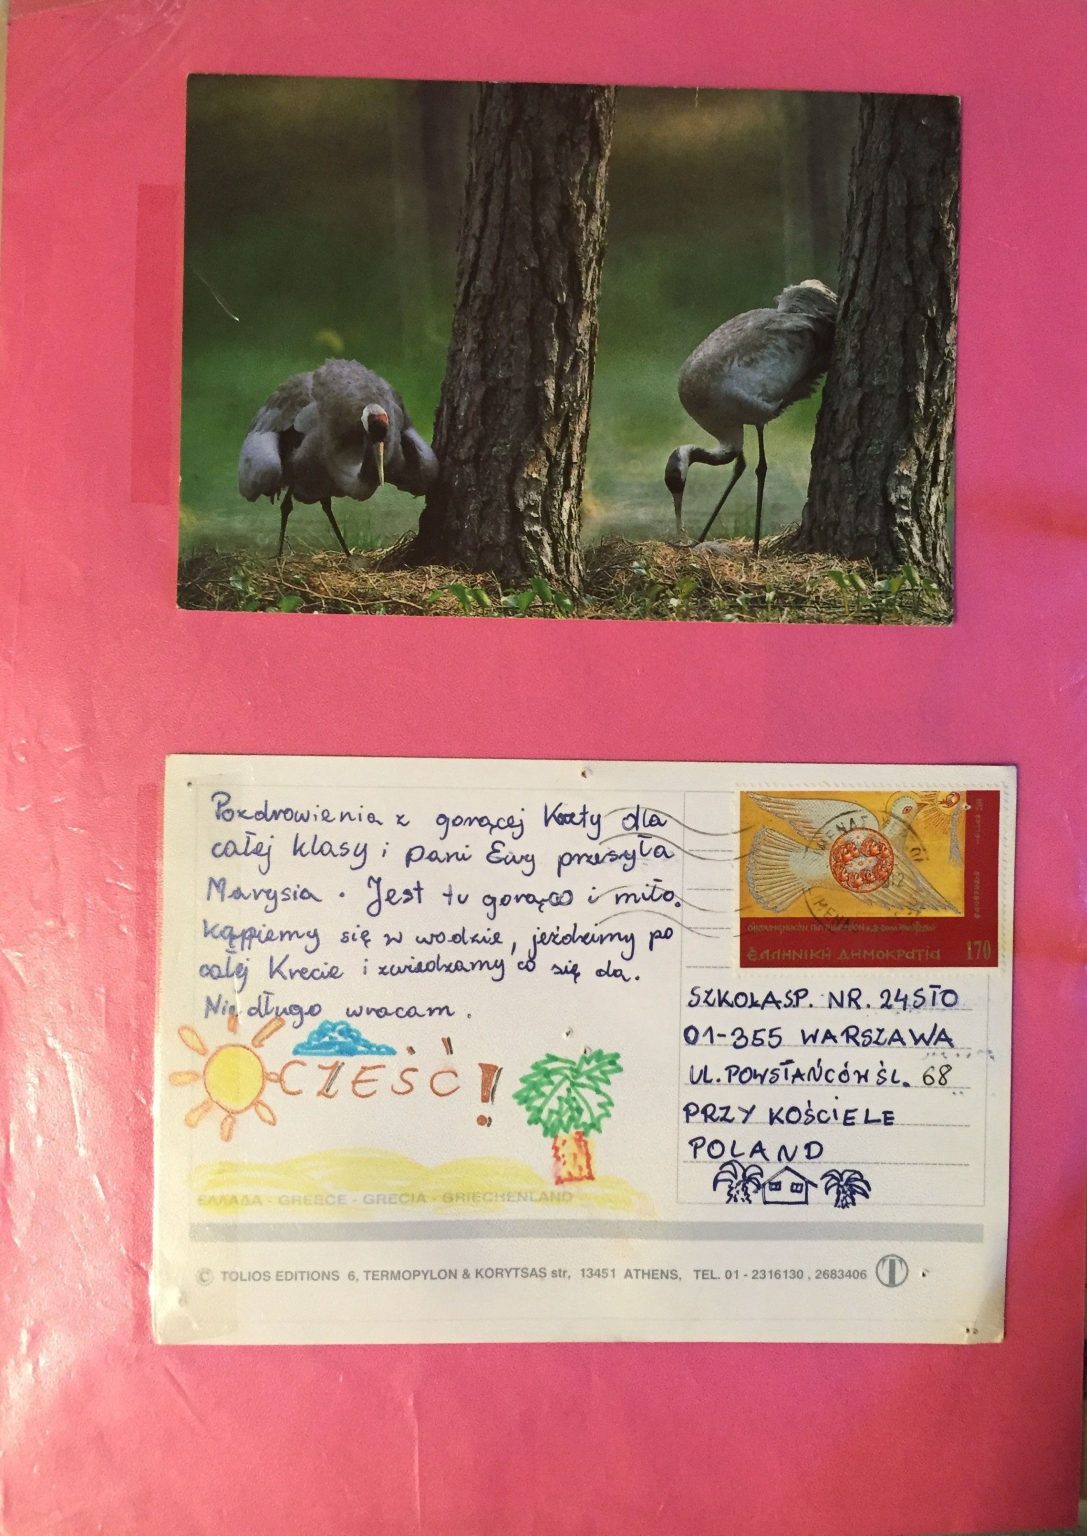 Pozdrowienia z gorącej Krety dla
całej klasy i pani Ewy przesyła
Marysia. Jest tu gorąco i miło.
Kąpiemy się w wodzie, jeździmy po
całej Krecie i zwiedzamy co się da.
Nie długo wracam.
CZEŚĆ!
ΕΛΛΑΔΑ - GREECE - GRECIA - GRIECHENLAND
ΕΛΛΗΝΙΚΗ ΔΗΜΟΚΡΑΤΙΑ 170
SZKOŁA SP. NR. 24 STO
01-355 WARSZAWA
UL. POWSTAŃCÓW ŚL. 68
PRZY KOŚCIELE
POLAND
© TOLIOS EDITIONS 6, TERMOPYLON & KORYTSAS str, 13451 ATHENS, TEL. 01 - 2316130, 2683406